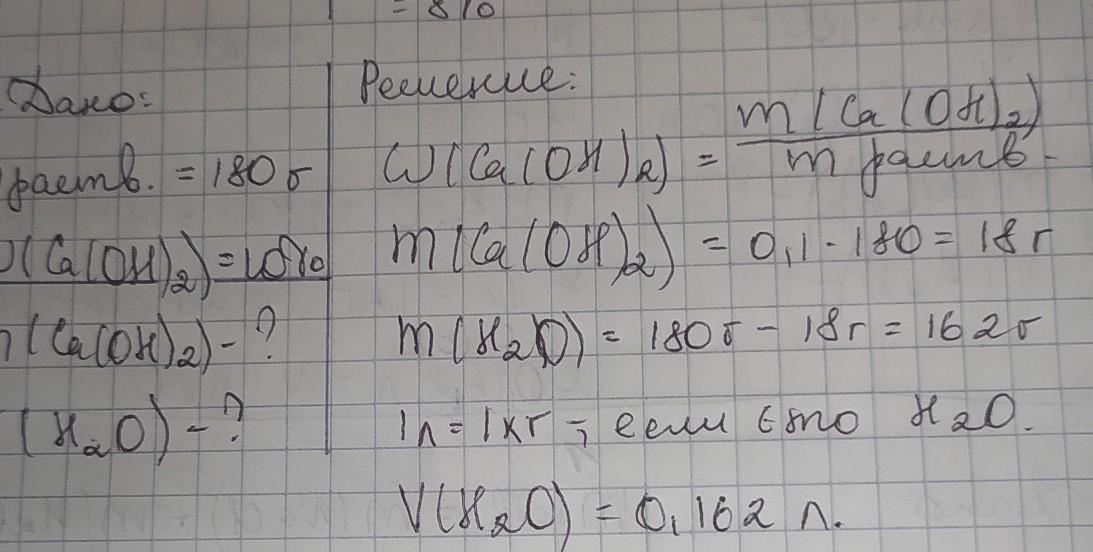 = 810
Дано:
раств. = 180 г
(Ca(OH)₂) = 10%
(Ca(OH)₂) - ?
(H₂O) - ?
Решение:
ω(Ca(OH)₂) = m(Ca(OH)₂) / m раств.
m(Ca(OH)₂) = 0,1 · 180 = 18 г
m(H₂O) = 180 г - 18 г = 162 г
1 л = 1 кг, если это H₂O.
V(H₂O) = 0,162 л.